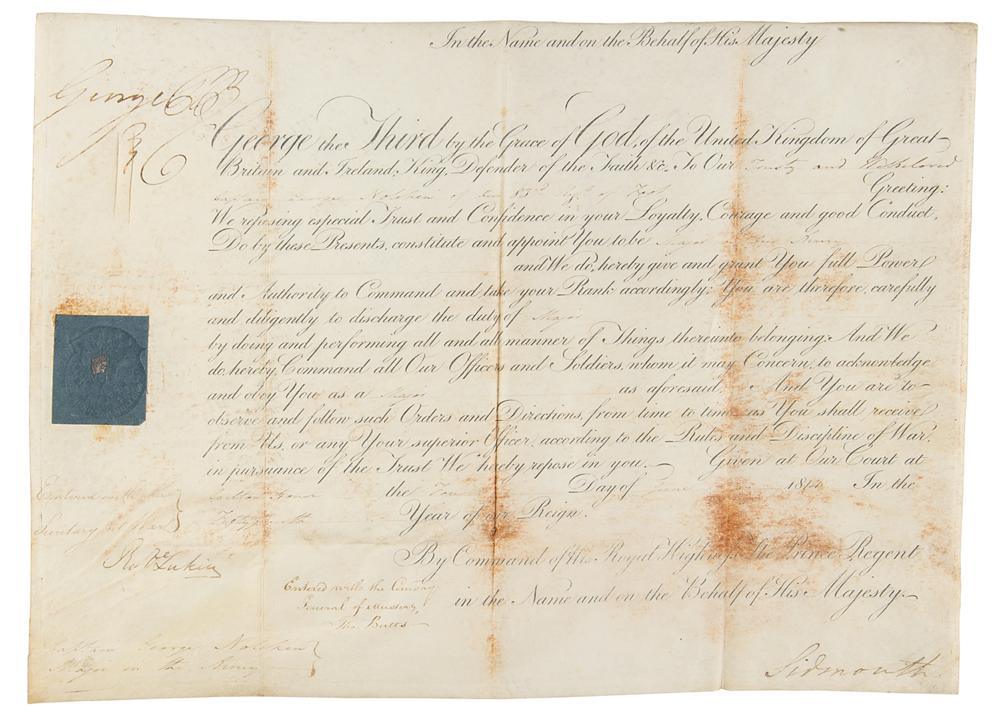 In the Name and on the Behalf of His Majesty
George P R
George the Third by the Grace of God, of the United Kingdom of Great
Britain and Ireland, King, Defender of the Faith &c. To Our Trusty and Beloved
Captain George Nolcken of Our 83rd Regt of Foot Greeting:
We reposing especial Trust and Confidence in your Loyalty, Courage and good Conduct,
Do by these Presents, constitute and appoint You to be Major in Our Army
and We do, hereby give and grant You full Power
and Authority to Command and take your Rank accordingly: You are therefore, carefully
and diligently to discharge the duty of Major
by doing and performing all and all manner of Things thereunto belonging: And We
do, hereby, Command all Our Officers and Soldiers, whom it may Concern, to acknowledge
and obey You as a Major as aforesaid. And You are to
observe and follow such Orders and Directions, from time to time, as You shall receive
from Us, or any Your superior Officer, according to the Rules and Discipline of War,
in pursuance of the Trust We hereby repose in you. Given at Our Court at
Carlton House the Day of June 1814 In the
Year of our Reign.
By Command of His Royal Highness The Prince Regent
in the Name and on the Behalf of His Majesty.
Entered with the
Secretary at War
Entered with the Commy
General of Musters
Tho. Butts
Captain George Nolcken
Major in the Army
Sidmouth